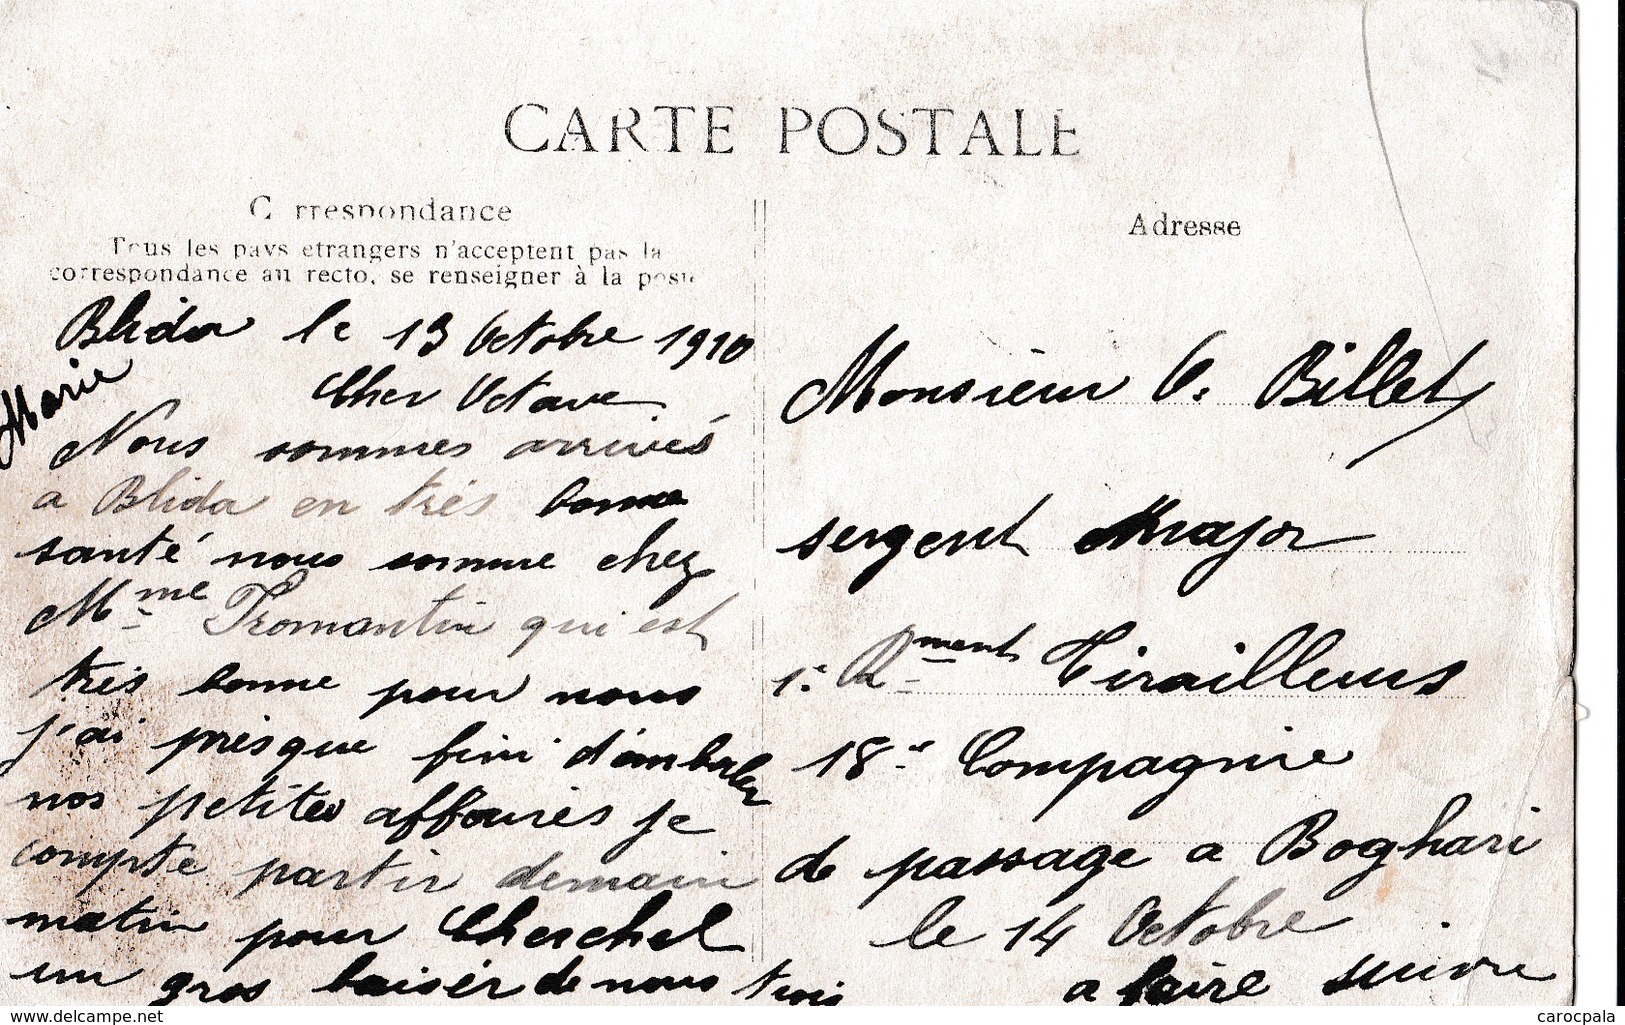 CARTE POSTALE
Correspondance
Tous les pays etrangers n'acceptent pas la
correspondance au recto, se renseigner à la poste
Blida le 13 Octobre 1910
Cher Octave
Nous sommes arrivés
a Blida en très bonne
santé nous somme chez
Mme Fromantin qui est
très bonne pour nous
j'ai présque fini d'embaler
nos petites affaires je
compte partir demain
matin pour Cherchel
un gros baisér de nous trois
Marie
Adresse
Monsieur O. Billet
sergent Major
1e Rment Tirailleurs
18e Compagnie
de passage a Boghari
le 14 Octobre
a faire suivre
www.delcampe.net
carocpala